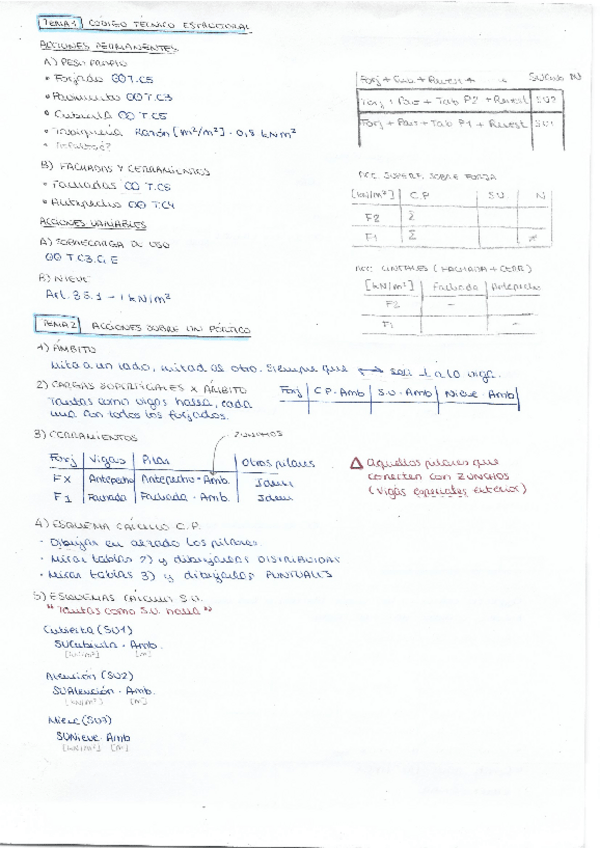 TEMA 1 CÓDIGO TÉCNICO ESTRUCTURAL
ACCIONES PERMANENTES
A) PESO PROPIO
• Forjado T.C5
• Pavimento T.C3
• Cubierta T.C5
• Tabiquería Razón [m²/m²] · 0,8 kN/m²
B) FACHADAS Y CERRAMIENTOS
• Fachadas T.C5
• Antepecho T.C4
ACCIONES VARIABLES
A) SOBRECARGA DE USO
B) NIEVE
Art. 3.5.1 - 1 kN/m²
Forj + Pav + Tab P2 + Revest SU2
Forj + Pav + Tab P1 + Revest SU1
ACC. SUPERF. SOBRE FORJA.
[kN/m²] C.P. S.U. N
F2 Σ
F1 Σ
ACC. LINEALES (FACHADA + CERR)
[kN/m²] Fachada Antepecho
F2 -
F1 -
TEMA 2 ACCIONES SOBRE UN PÓRTICO
1) ÁMBITO
Mitad a un lado, mitad al otro. Siempre que ⟷ sea ⊥ a la viga.
2) CARGAS SUPERFICIALES X ÁMBITO
Tantas como vigas haya, cada
una con todos los forjados.
Forj C.P · Amb S.U · Amb Nieve · Amb
3) CERRAMIENTOS
ZUNCHOS
Forj Vigas Pilar Otros pilares
FX Antepecho Antepecho · Amb. Idem
F1 Fachada Fachada · Amb. Idem
△ Aquellos pilares que
conecten con ZUNCHOS
(Vigas especiales exterior)
4) ESQUEMA CÁLCULO C.P.
- Dibujas en alzado los pilares.
• Mirar tablas 2) y dibujarlas DISTRIBUIDAS
• Mirar tablas 3) y dibujarlas PUNTUALES
5) ESQUEMAS CÁLCULO S.U.
"Tantas como S.U. haya"
Cubierta (SU1)
SUCubierta · Amb.
[kN/m²] [m]
Atención (SU2)
SUAtención · Amb.
[kN/m²] [m]
Nieve (SU3)
SUNieve · Amb
[kN/m²] [m]